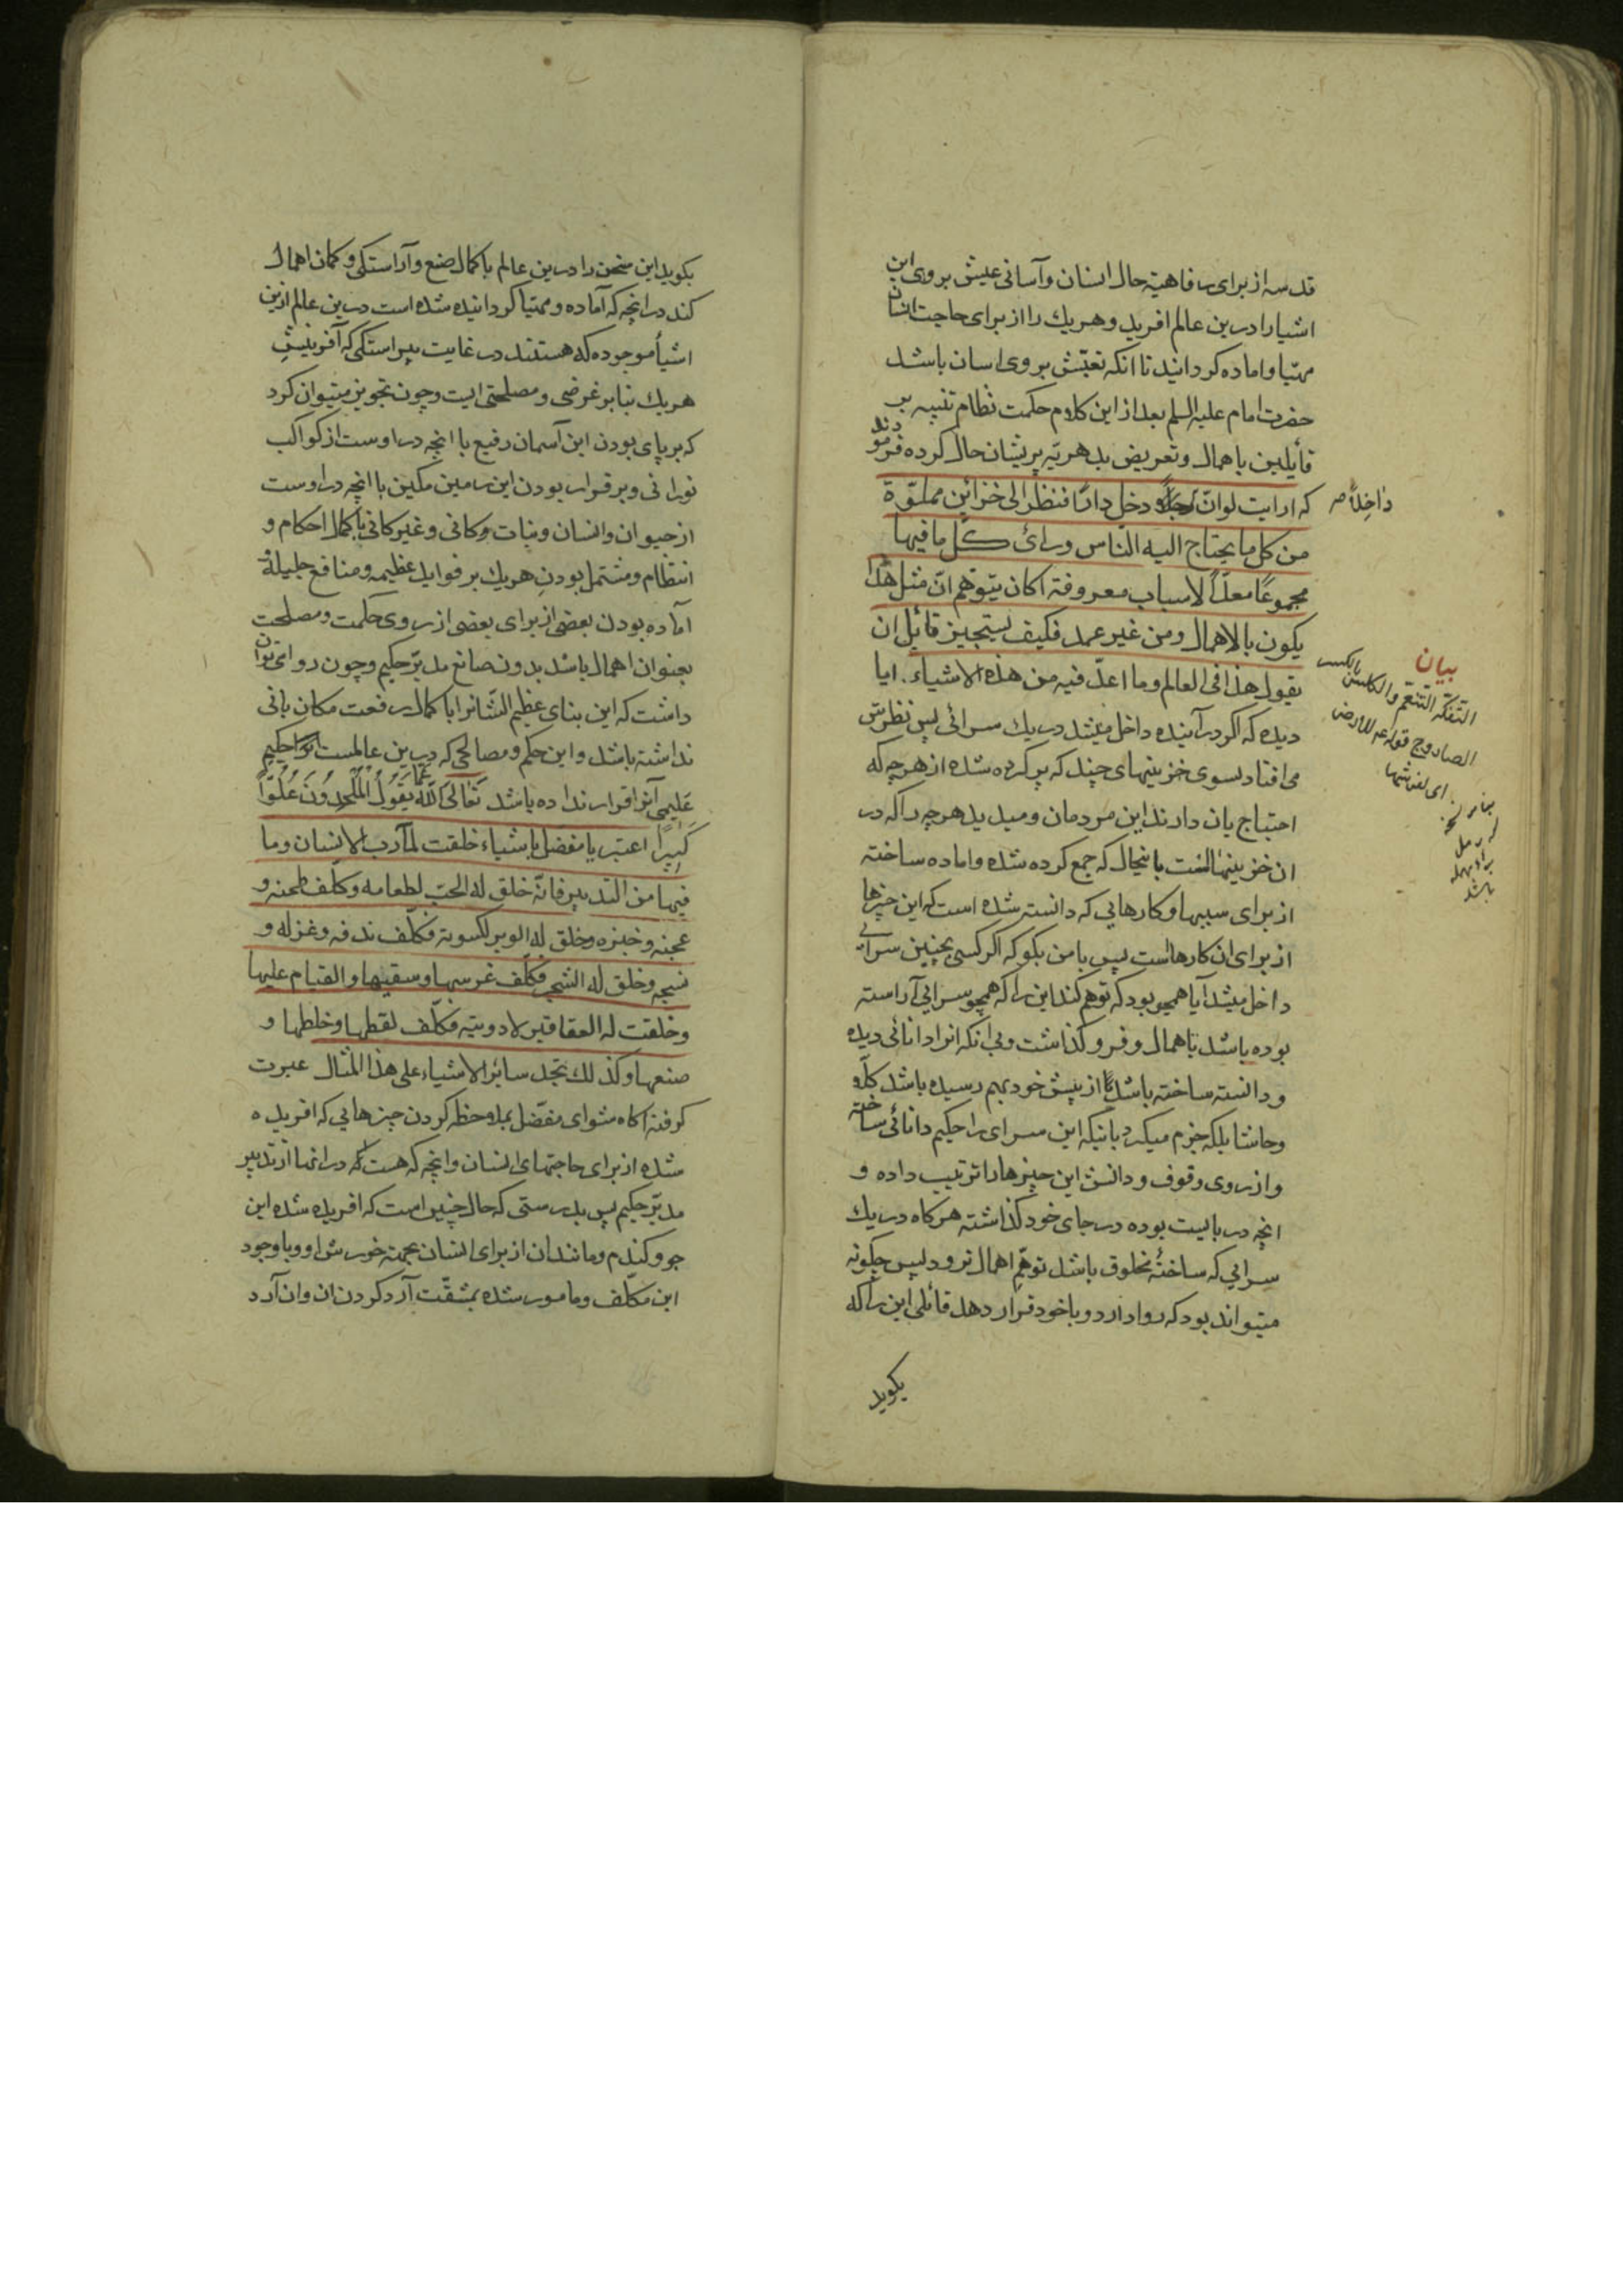 قدسه از برای رفاهیة حال انسان وآسانی عیش بروی این
اشیارا درین عالم افرید وهریك را از برای حاجت انسان
مهیا واماده کردانید تا انکه تعیّش بروی اسان باشد
حضرت امام علیه السلم بعد از این کلام حکمت نظام تنبیه بر
قایلین باهمال وتعریض بدهریّه پریشان حال کرده فرمودند
که ارایت لوانّ داخلًا دخل دارًا فنظر الی خزاین مملوّة
من کل ما یحتاج الیه الناس ورأی کلّ ما فیها
مجموعًا معدًّا لاسباب معروفة اکان یتوهّم انّ مثل هذا
یکون بالاهمال ومن غیر عمد فکیف یستجیز قائل ان
یقول هذا فی العالم وما اعدّ فیه من هذه الاشیاء . ایا
دیده که اکر درآینده داخل میشد در یك سرائی پس نظرش
می افتاد بسوی خزینهای چند که پر کرده شده از هرچه که
احتیاج بان دارند این مردمان ومیدید هرچه را که در
ان خزینهاست باینحال که جمع کرده شده واماده ساخته
از برای سببها وکارهایی که دانسته شده است که این چیزها
از برای ان کارهاست پس با من بکو که اکر کسی بچنین سرائی
داخل میشد آیا همچو بود که توهم کند این را که همچو سرایی آراسته
بوده باشد باهمال وفروکذاشت وبی انکه انرا دانائی دیده
ودانسته ساخته باشد یا از پیش خود بهم رسیده باشد کلّا
وحاشا بلکه جزم میکرد باینکه این سرای را حکیم دانائی ساخته
واز روی وقوف ودانش این چیزها را ترتیب داده و
انچه دربایست بوده درجای خود کذاشته هرکاه در یك
سرایی که ساختهٔ مخلوق باشد توهّم اهمال نرود پس چکونه
میتواند بود که روا دارد وبا خود قرار دهد قائلی این را که
بکوید
داخلًا صح
بیان
التفکّه التنعّم والکلس بالکسر
الصاروج قوله ع للارض
ای لفراشها
بکوید این سخن را درین عالم با کمال صنع وآراستکی وکمان اهمال
کند در انچه که آماده ومهیّا کردانیده شده است درین عالم ازین
اشیأ موجوده که هستند در غایت پیراستکی که آفرینش
هریك بنابر غرضی ومصلحتی ایت وچون تجویز میتوان کرد
که برپای بودن این آسمان رفیع با انچه در اوست از کواکب
نورانی وبرقرار بودن این زمین مکین با انچه در اوست
از حیوان وانسان ونبات وکانی وغیر کانی با کمال احکام و
انتظام ومشتمل بودن هریك بر فواید عظیمه ومنافع جلیله و
آماده بودن بعضی از برای بعضی از روی حکمت ومصلحت
بعنوان اهمال باشد بدون صانع مدبّر حکیم وچون روا می توان
داشت که این بنای عظیم الشّانرا با کمال رفعت مکان بانی
نداشته باشد واین حکم ومصالحی که درین عالمست انرا حکیم
علیمی آنرا قرار نداده باشد تَعَالَی اللّٰهُ عَمَّا یَقُولُ المُلْحِدُونَ عُلُوًّا
کَبِیرًا اعتبر یا مفضل باشیاء خلقت لمآرب الانسان وما
فیها من التدبیر فانّه خلق له الحب لطعامه وکلّف طحنه و
عجنه وخبزه وخلق له الوبر لکسوته فکلّف ندفه وغزله و
نسجه وخلق له الشجر فکلّف غرسها وسقیها والقیام علیها
وخلقت له العقاقیر لادویته فکلّف لقطها وخلطها و
صنعها وکذلك تجد سائر الاشیاء علی هذا المثال عبرت
کرفته اکاه شو ای مفضّل بملاحظه کردن چیزهایی که افریده
شده از برای حاجتهای انسان وانچه که هست که در انها از تدبیر
مدبّر حکیم پس بدرستی که حال چنین است که افریده شده این
جو وکندم ومانند ان از برای انسان بجهة خورش او وبا وجود
این مکلّف ومامور شده بمشقّت آرد کردن ان وان آرد